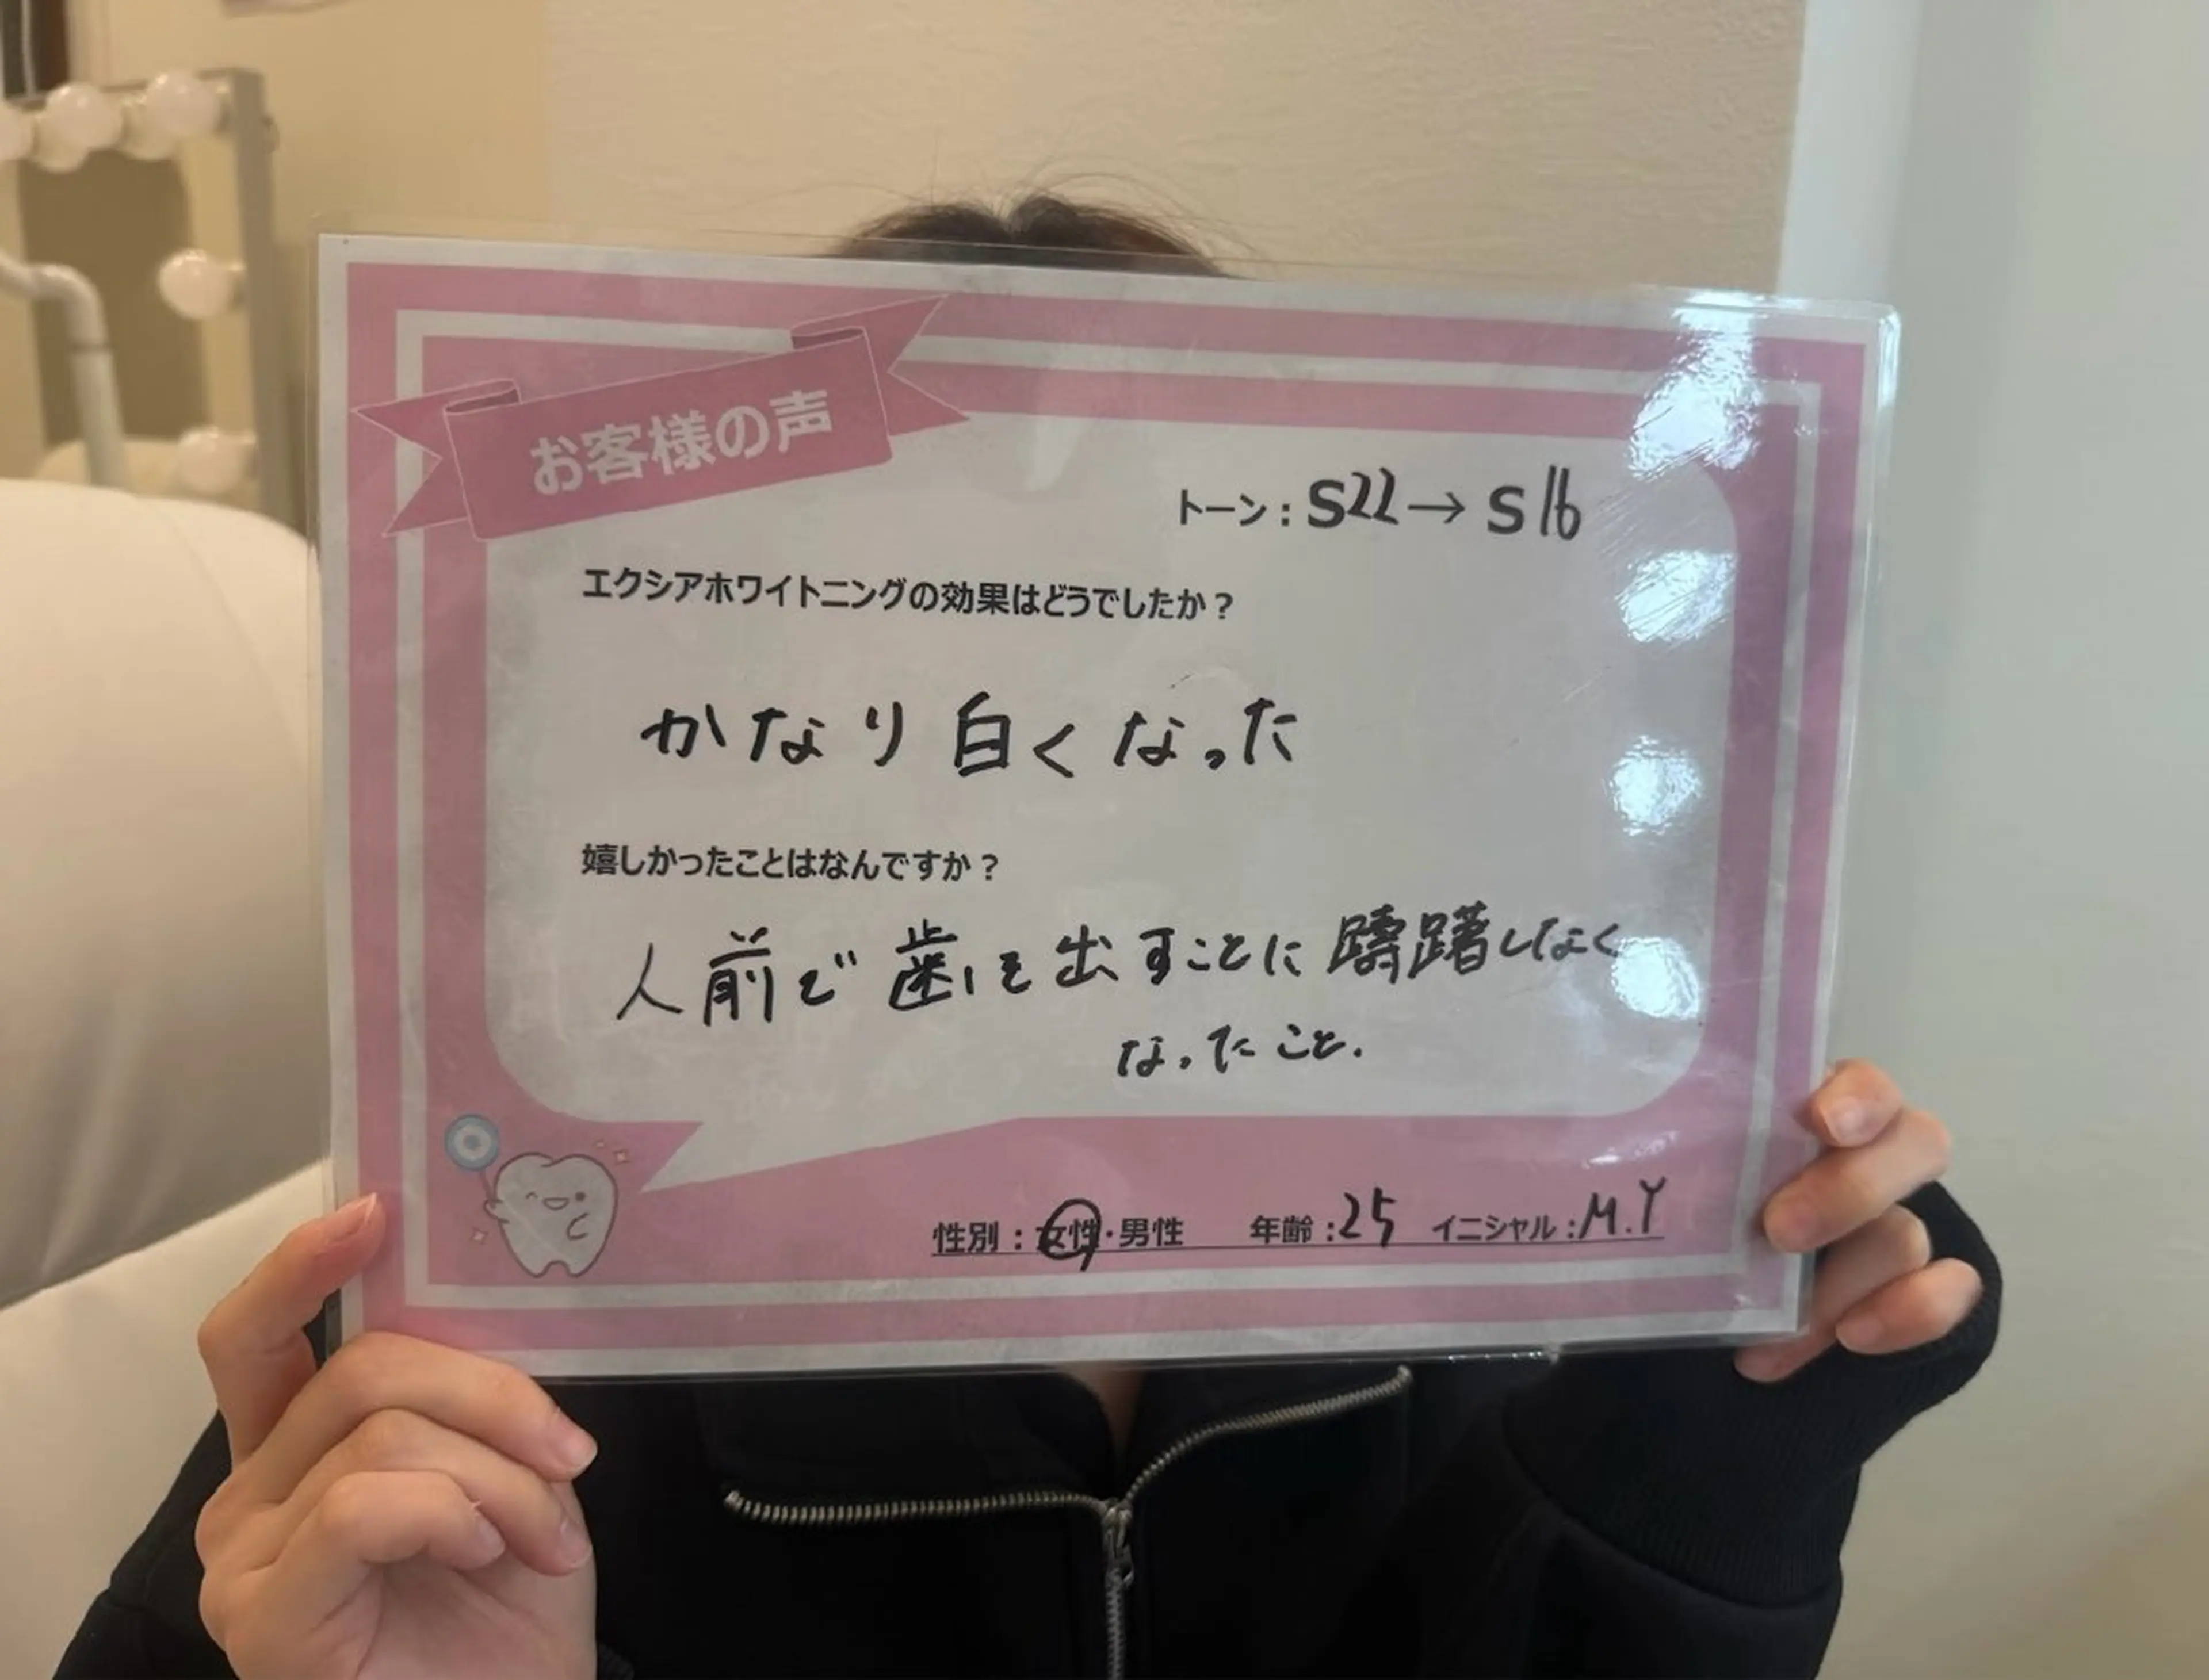 お客様の声
トーン：S22→S16
エクシアホワイトニングの効果はどうでしたか？
かなり白くなった
嬉しかったことはなんですか？
人前で歯を出すことに躊躇しなく
なったこと.
性別：女性・男性 年齢：25 イニシャル：M.Y